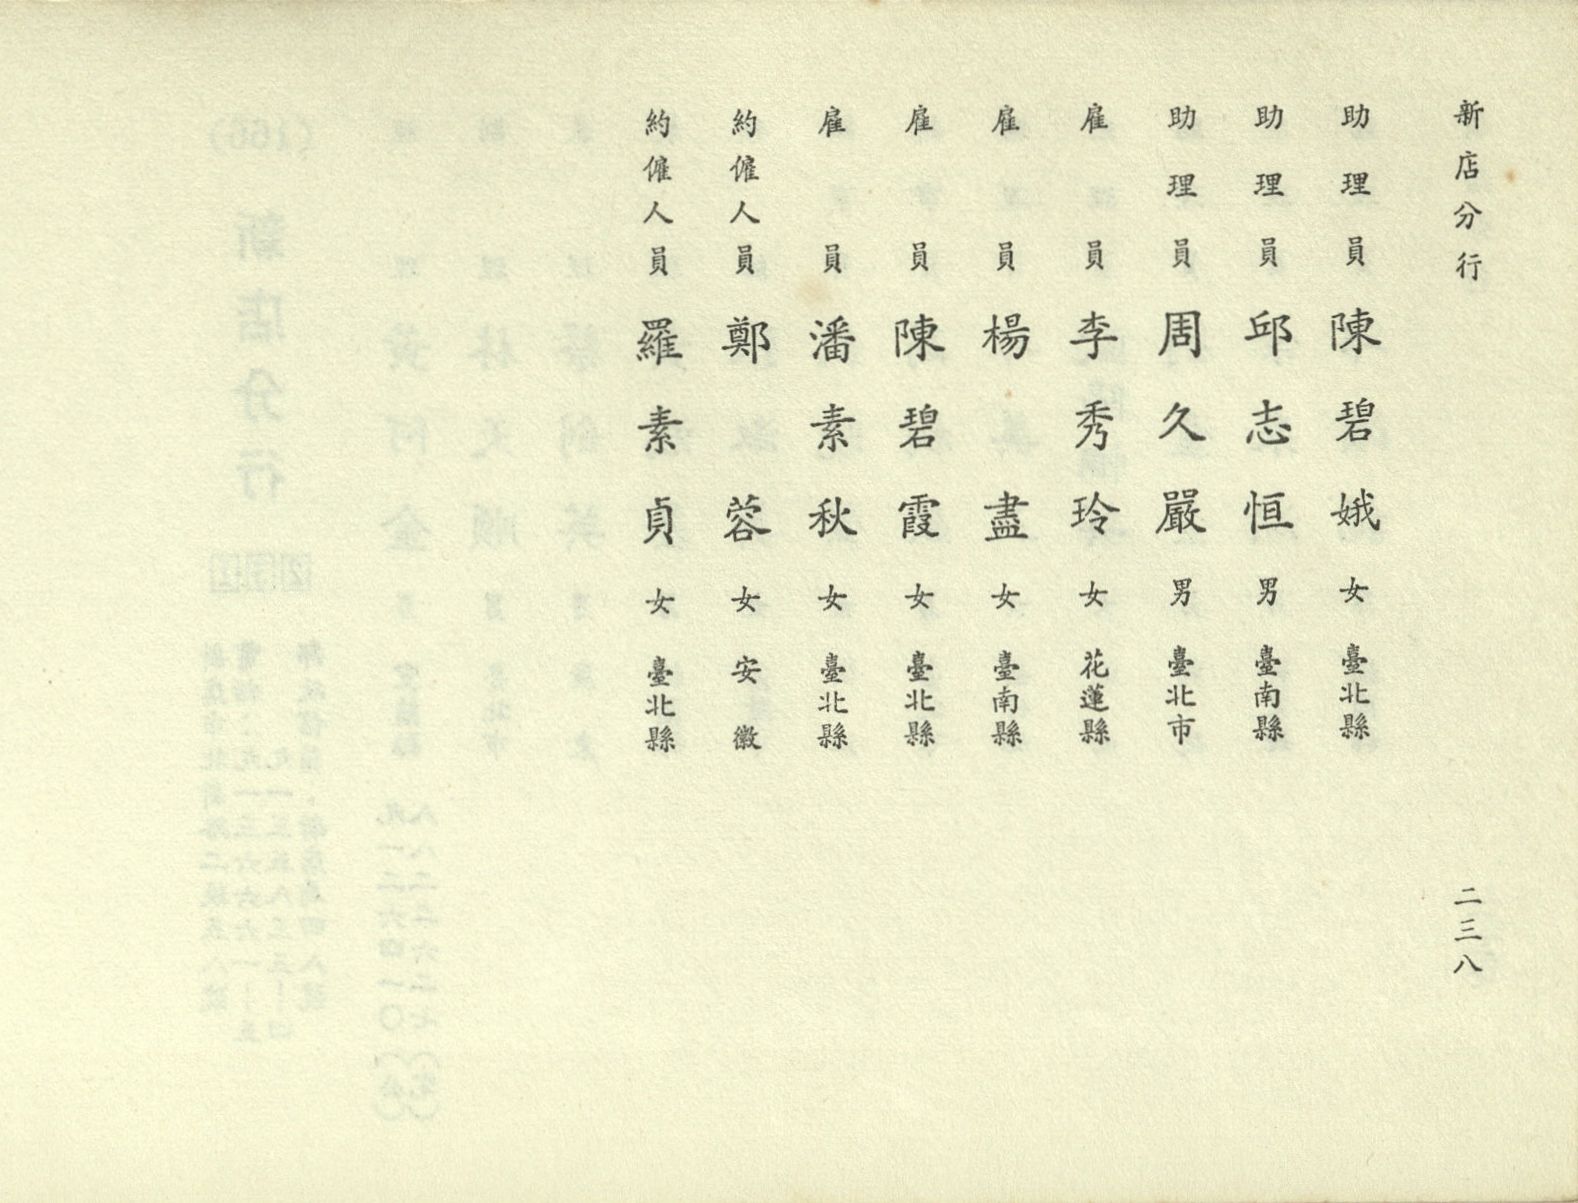 新店分行
二三八
助理員 陳碧娥 女 臺北縣
助理員 邱志恒 男 臺南縣
助理員 周久嚴 男 臺北市
雇員 李秀玲 女 花蓮縣
雇員 楊盡 女 臺南縣
雇員 陳碧霞 女 臺北縣
雇員 潘素秋 女 臺北縣
約僱人員 鄭蓉 女 安徽
約僱人員 羅素貞 女 臺北縣